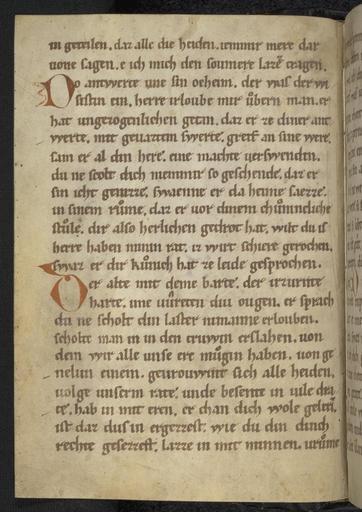 in geteilen. daz alle die heiden. iemmir mere dar
uone sagen. e ich mich den soumere laze tragen.
Do antwrte ime sin oeheim. der was der wi
sistin ein. herre irloube mir ubern man. er
hat ungezogenlichen getan. daz er ze diner ant
wrte. mit geuaztem swerte. greif an sine were.
sam er al din here. eine machte uerswenden.
du ne scolt dich niemmir so geschende. daz er
sin icht genieze. swaenne er da heime saezze.
in sinem rume. daz er uor dinem chunincliche
stule. dir also herlichen gedrot hat. wilt du is
herre haben minin rat. iz wirt schiere gerochen.
swaz er dir kunich hat ze leide gesprochen.
Der alte mit deme barte. der irzurnte
harte. ime uiureten diu ougen. er sprach
du ne scholt din laster niemanne erlouben.
scholte man in in den truwin erslahen. uon
dem wir alle unse ere mugin haben. uon ge
nelun einem. getrowunte sich alle heiden.
uolge unserm rate. unde besente in uile dra
te. hab in mit eren. er chan dich wole geleren.
ist daz dus in ergezzest. wie du din dinch
rechte gesezzest. Lazze in mit minnen. urume